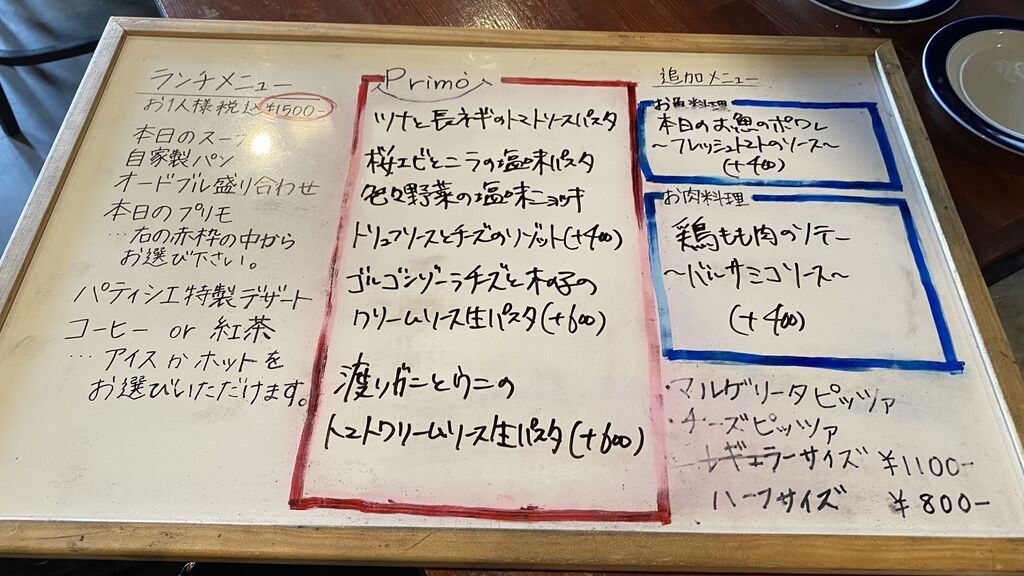 ランチメニュー
お1人様税込¥1500-
本日のスープ
自家製パン
オードブル盛り合わせ
本日のプリモ
…右の赤枠の中から
お選び下さい。
パティシエ特製デザート
コーヒー or 紅茶
…アイスかホットを
お選びいただけます。
Primo
ツナと長ネギのトマトソースパスタ
桜エビとニラの塩味パスタ
色々野菜の塩味ニョッキ
トリュフソースとチーズのリゾット(+400)
ゴルゴンゾーラチーズと木の子の
クリームソース生パスタ(+600)
渡りガニとウニの
トマトクリームソース生パスタ(+600)
追加メニュー
お魚料理
本日のお魚のポワレ
〜フレッシュトマトのソース〜
(+400)
お肉料理
鶏もも肉のソテー
〜バルサミコソース〜
(+400)
・マルゲリータピッツァ
・チーズピッツァ
レギュラーサイズ ¥1100-
ハーフサイズ ¥800-